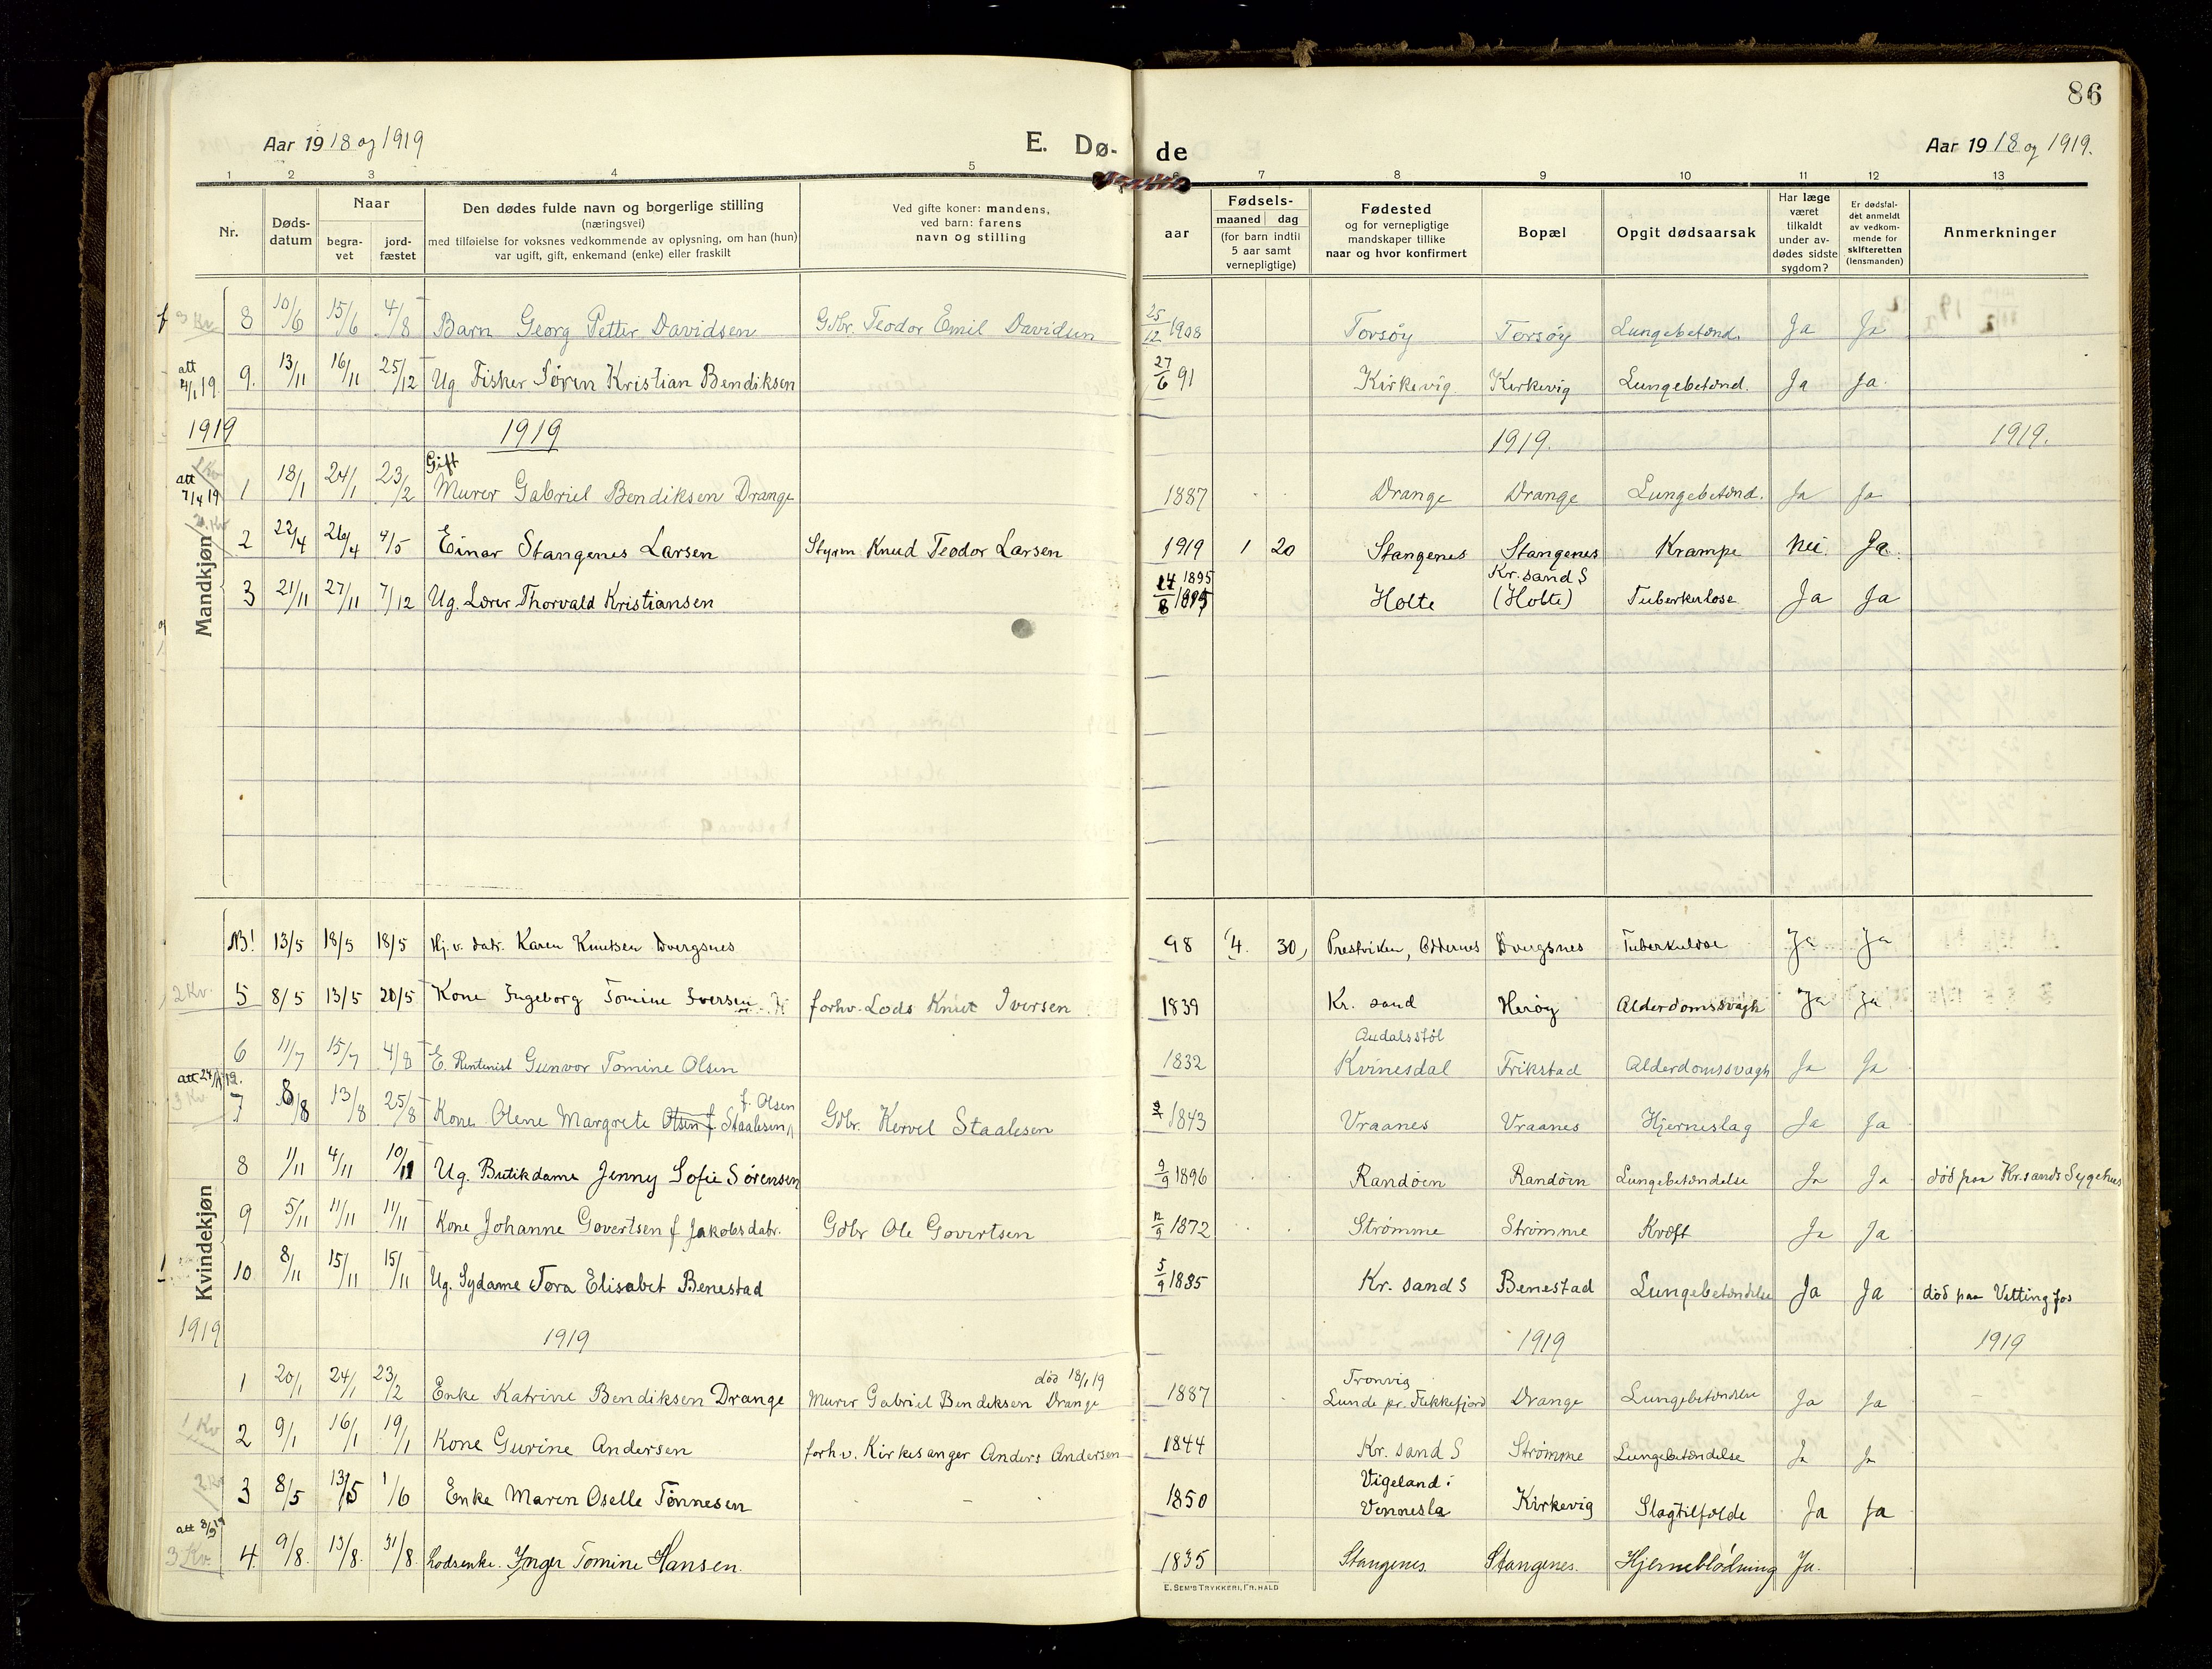 86
Aar 1918 og 1919
E. Dø-
de
Aar 1918 og 1919.
1 2 3 4 5 6 7 8 9 10 11 12 13
Nr.
Døds-
datum
Naar
begra-
vet
jord-
fæstet
Den dødes fulde navn og borgerlige stilling
(næringsvei)
med tilføielse for voksnes vedkommende av oplysning, om han (hun)
var ugift, gift, enkemand (enke) eller fraskilt
Ved gifte koner: mandens,
ved barn: farens
navn og stilling
aar
Fødsels-
maaned dag
(for barn indtil
5 aar samt
vernepligtige)
Fødested
og for vernepligtige
mandskaper tillike
naar og hvor konfirmert
Bopæl
Opgit dødsaarsak
Har læge
været
tilkaldt
under av-
dødes sidste
sygdom?
Er dødsfal-
det anmeldt
av vedkom-
mende for
skifteretten
(lensmanden)
Anmerkninger
3 Kv. 8 10/6 15/6 4/8 Barn Georg Petter Davidsen Gdbr. Teodor Emil Davidsen 25/12 1908 Torsøy Torsøy Lungebetænd. Ja Ja
att 4/1 19. 9. 13/11 16/11 25/12 Ug. Fisker Søren Kristian Bendiksen 27/6 91 Kirkevig Kirkevig Lungebetænd. Ja Ja.
1919 1919 1919. 1919.
1 Kv att 7/4 19 1 18/1 24/1 23/2 Gift Murer Gabriel Bendiksen Drange 1887 Drange Drange Lungebetænd. Ja Ja
2. Kv 2 22/4 26/4 4/5 Einar Stangenes Larsen Styrm Knud Teodor Larsen 1919 1 20 Stangenes Stangenes Krampe Nei Ja.
3 21/11 27/11 7/12 Ug. Lærer Thorvald Kristiansen 14/8 1895 1895 Holte Kr. sand S (Holte) Tuberkulose Ja Ja
Mandkjøn
NB! 13/5 18/5 18/5 Hj. v. datr. Karen Knutsen Dvergsnes 98 (4. 30) Prestviken, Oddernes Dvergsnes Tuberkulose Ja Ja
2 Kv. 5 8/5 13/5 20/5 Kone Ingeborg Tomine Iversen forhv. Lods Knut Iversen 1839 Kr. sand Herøy Alderdomssvagh Ja Ja
6 11/7 15/7 4/8 E. Rentenist Gunvor Tomine Olsen 1832 Audalsstøl Kvinesdal Frikstad Alderdomssvagh Ja Ja
att 24/11 19. 3 Kv. 7 8/8 13/8 25/8 Kone Olene Margrete Olsen f Staalesen f. Olsen Gdbr. Kervel Staalesen 1843 Vraanes Vraanes Hjerneslag Ja Ja
8 1/11 4/11 10/11 Ug. Butikdame Jenny Sofie Sørensen 9/9 1896 Randøen Randøen Lungebetændelse Ja Ja død paa Kr.sands Sygehus
9 5/11 11/11 11/11 Kone Johanne Govertsen f Jakobsdatr. Gdbr Ole Govertsen 12/9 1872 Strømme Strømme Kræft Ja Ja
10 8/11 15/11 15/11 Ug. Sydame Tora Elisabet Benestad 5/9 1885 Kr. sand S Benestad Lungebetændelse Ja Ja død paa Vittingfos
Kvindekjøn
1919 1919 1919 1919
1 20/1 24/1 23/2 Enke Katrine Bendiksen Drange Murer Gabriel Bendiksen Drange død 18/1 19 1887 Tronvig Lunde pr. Flekkefjord Drange Lungebetændelse Ja Ja
1 Kv 2 9/1 16/1 19/1 Kone Gurine Andersen forhv. Kirkesanger Anders Andersen 1844 Kr. sand S Strømme Lungebetændelse Ja Ja
2 Kv 3 8/5 13/5 1/6 Enke Maren Oselle Tønnesen 1850 Vigeland i Vennesla Kirkevig Slagtilfælde Ja Ja
att 8/9 19 3 Kv. 4. 9/8. 13/8. 31/8. Lodsenke. Inger Tomine Hansen. 1835 Stangenes. Stangenes. Hjerneblødning Ja.
E. SEM'S TRYKKERI, FR. HALD